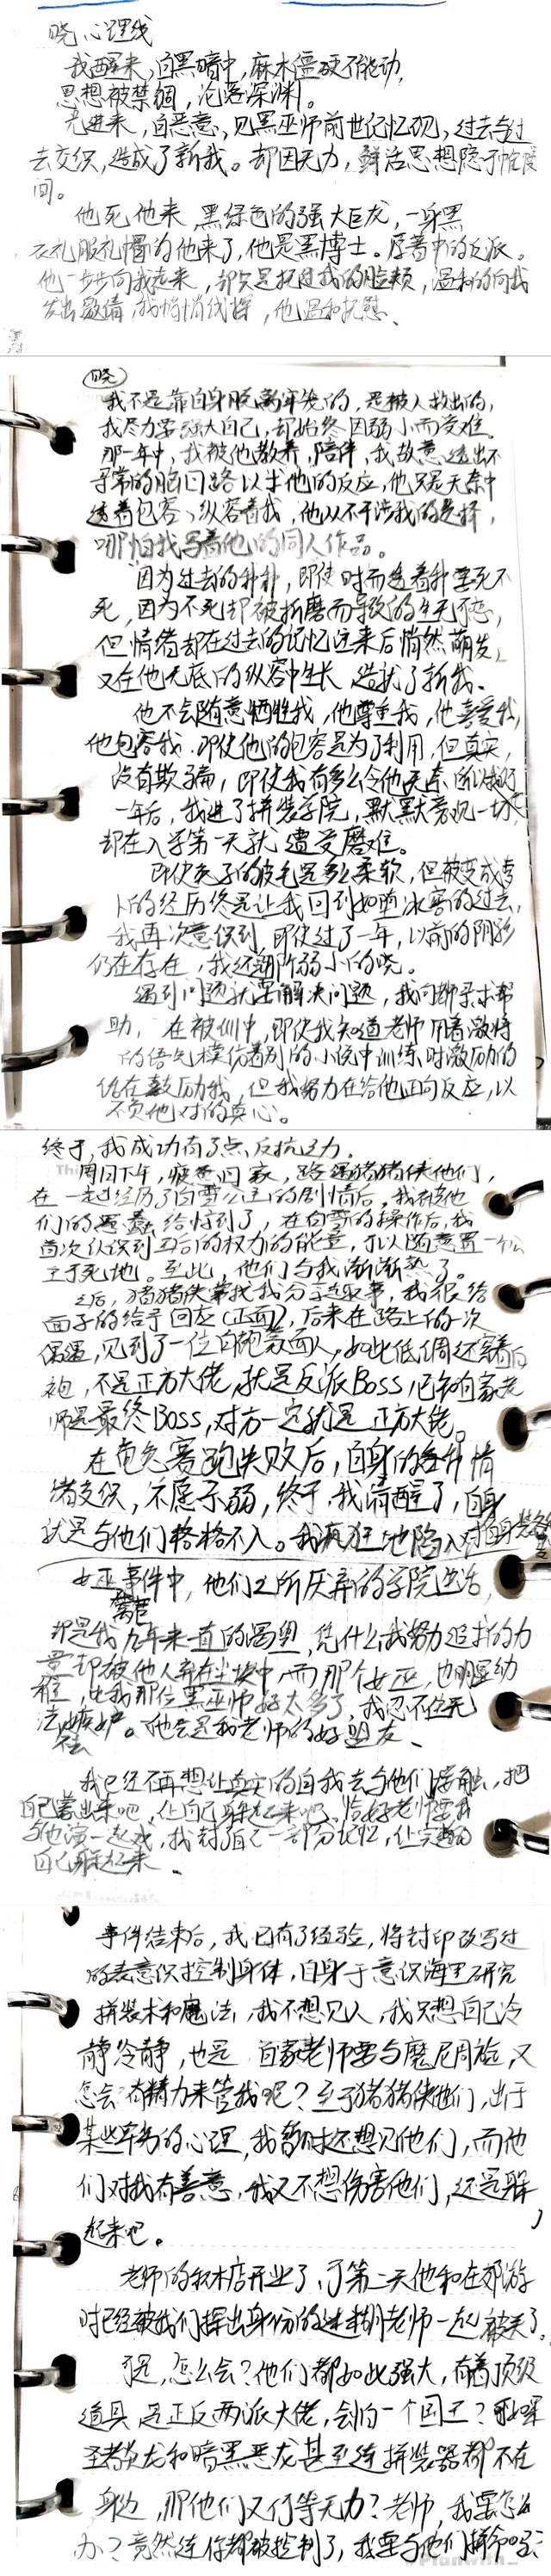 晓 心理线
我醒来,自黑暗中,麻木僵硬不能动,
思想被禁锢,沦落深渊。
光进来,自恶意,见黑巫师前世记忆现,过去与过
去交织,造成了新我。却因无力,鲜活思想隐于帷幔
间。
他死他来,黑绿色的强大巨龙,一身黑
衣礼服礼帽的他来了,他是黑博士。原著中的反派。
他一步步向我走来,却只是抚过我的脸颊,温和的向我
发出邀请,我悄悄,他温和抚慰、
晓
我不是靠自身脱离牢笼的,是被人救出的,
我尽力要强大自己,却始终因弱小而受难。
那一年中,我被他教养,陪伴,我故意透出不
寻常的脑回路以求他的反应,他只是无奈中
透着包容、纵容着我,他从不干涉我的选择,
哪怕我写着他的同人作品。
因为过去的种种,即使时而透着种要死不
死,因为不死却被折磨而导致的生无可恋,
但情绪却在过去的记忆过来后悄然萌发,
又在他无底的纵容中生长,造就了新我、
他不会随意牺牲我,他尊重我,他喜爱我,
他包容我,即使他的包容是为了利用,但真实,
没有欺骗,即使我有多么令他无奈
一年后,我进了拼装学院,默默旁观一切,
却在入学第一天就遭受磨难。
即使兔子的皮毛是多么柔软,但被变成
的经历终是让我回到如堕冰窖的过去,
我再次意识到,即使过了一年,以前的阴影
仍在存在,我还是那弱小的晓。
遇到问题就要解决问题,我向师寻求帮
助,在被训中,即使我知道老师用着激将
的语气模仿着别的小说中训练时激励的
仍在鼓励我,但我努力在给他正向反应,以
不负他对的真心。
终于,我成功有了点反抗之力。
周日下午,疲惫回家,路遇猪猪侠他们,
在一起经历了白雪公主的剧情后,我被他
们的愚蠢给惊到了,在白雪的操作后,我
首次认识到王后的权力的能量,可以随意置一个公
主于死地。至此,他们与我渐渐熟了。
之后,猪猪侠常找我分享趣事,我很给
面子的给予回应(正面),后来在路上的一次
偶遇,见到了一位白袍蒙面人,如此低调还穿着白
袍,不是正方大佬,就是反派Boss,已知自家老
师是最终Boss,对方一定就是正方大佬。
在龟兔赛跑失败后,自身的各种情
绪交织,不愿示弱,终于,我清醒了,自身
就是与他们格格不入。我疯狂地陷入对自身装备的
女巫事件中,他们之所厌弃的学院生活,
却是我九年来一直的渴望,凭什么我努力追求的力
量却被他人弃在尘埃中,而那个女巫,也明显幼
稚,比我那位黑巫师好太多了,我忍不住无
法嫉妒。他会是我老师的好盟友、
我已经不再想让真实的自我去与他们接触,把
自己藏起来吧,让自己躲起来吧,恰好老师要我
与他演一起戏,我封了自己一部分记忆,让完整的
自己躲起来、
事件结束后,我已有了经验,将封印改写过
的表意识控制身体,自身于意识海里研究
拼装术和魔法,我不想见人,我只想自己冷
静冷静,也是 自家老师要与魔尼周旋,又
怎会有精力来管我呢?至于猪猪侠他们,出于
某些卑劣的心理,我暂时还想见他们,而他
们对我有善意,我又不想伤害他们,还是躲
起来吧。
老师的积木店开业了,于第二天他和在郊游
时已经被我们探出身份的迷糊老师一起被关了。
可是,怎么会?他们都如此强大,有着顶级
道具,是正反两派大佬,会怕一个国王?
圣炎龙和暗黑恶龙甚至连拼装器都不在
身边,那他们又何等无力?老师,我要怎么
办?竟然连你都被控制了,我要与他们拼命吗?